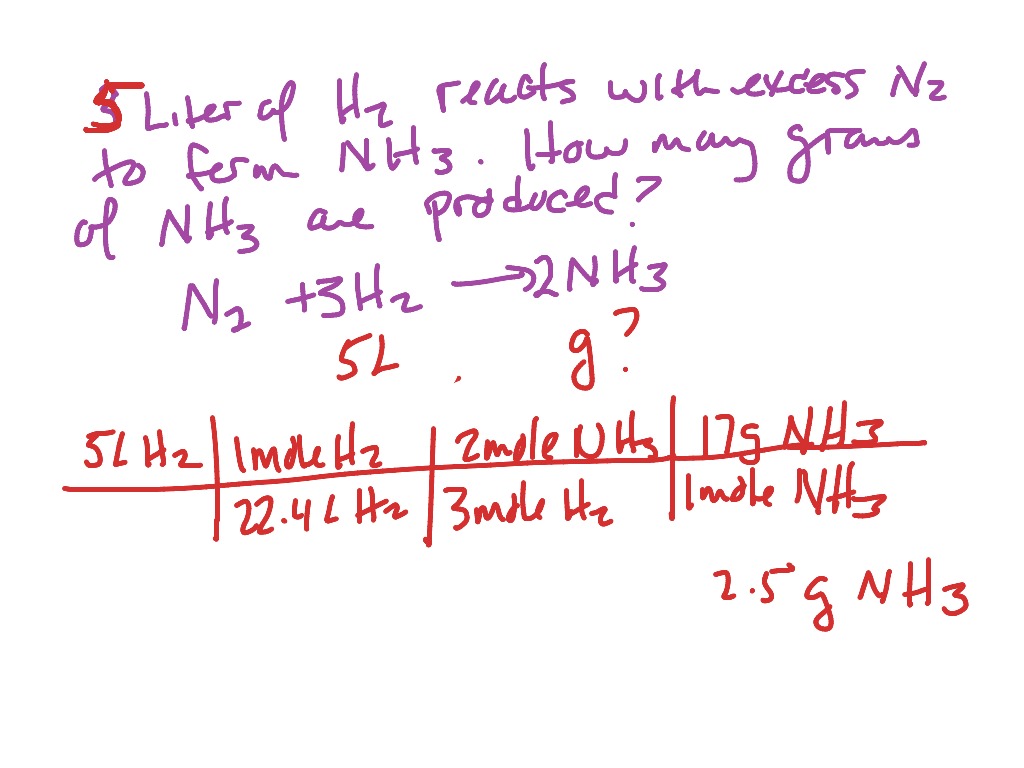 5 Liter of H2 reacts with excess N2
to form NH3. How many grams
of NH3 are produced?
N2 +3H2 → 2NH3
5L . g?
5L H2 | 1mole H2 | 2mole NH3 | 17g NH3
22.4L H2 | 3mole H2 | 1mole NH3
2.5 g NH3